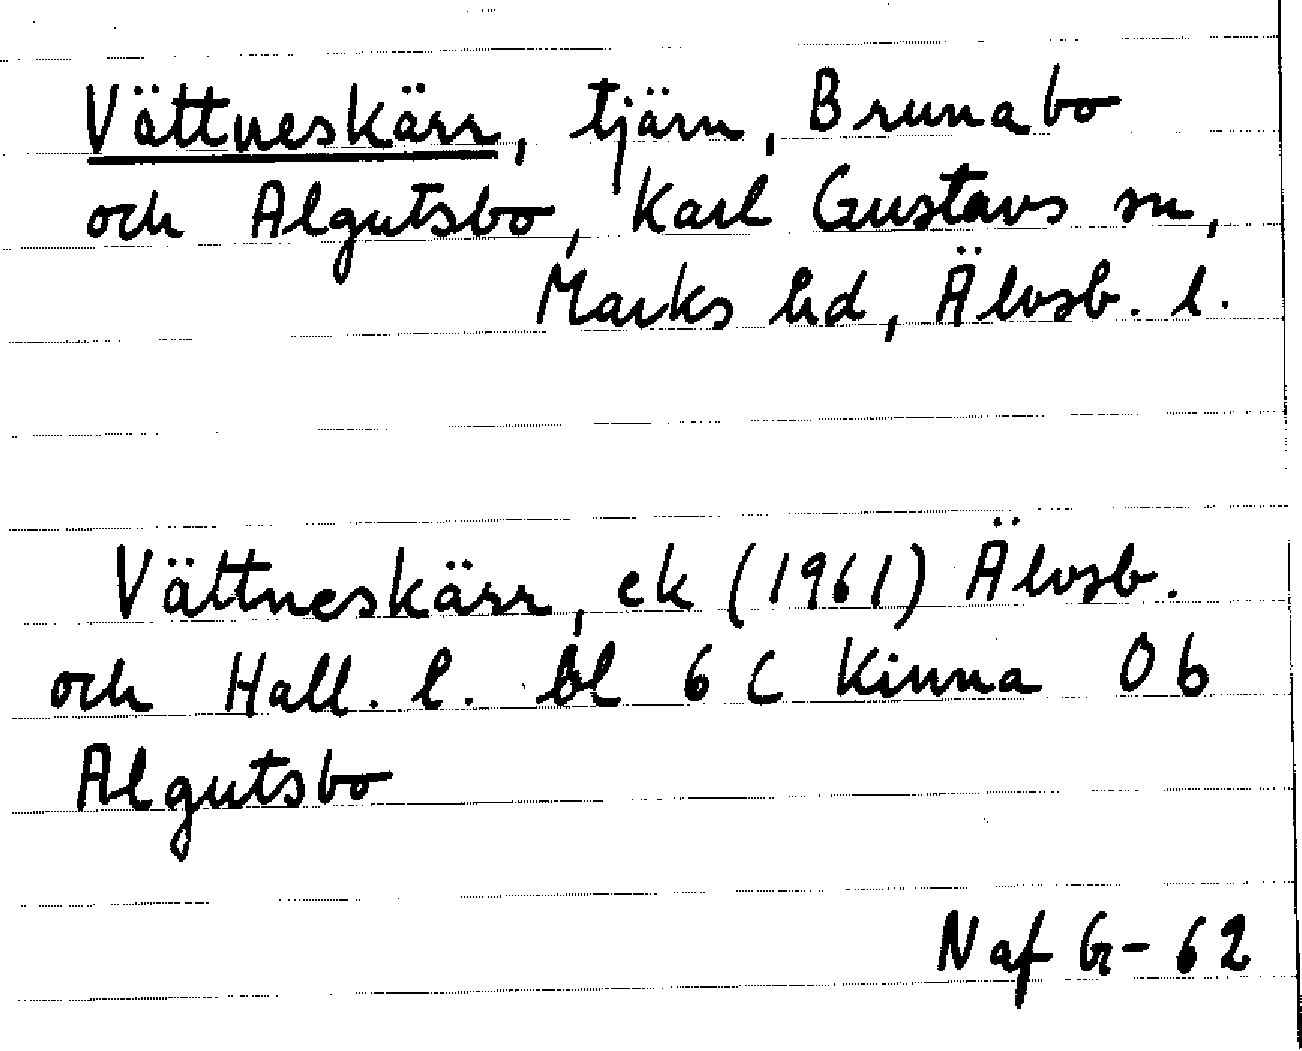 Vättneskärr, tjärn, Brunabo
och Algutsbo, Karl Gustavs sn,
Marks hd, Älvsb. l.
Vättneskärr, ek (1961) Älvsb.
och Hall. l. bl 6 C Kinna 0 b
Algutsbo
Naf G-62